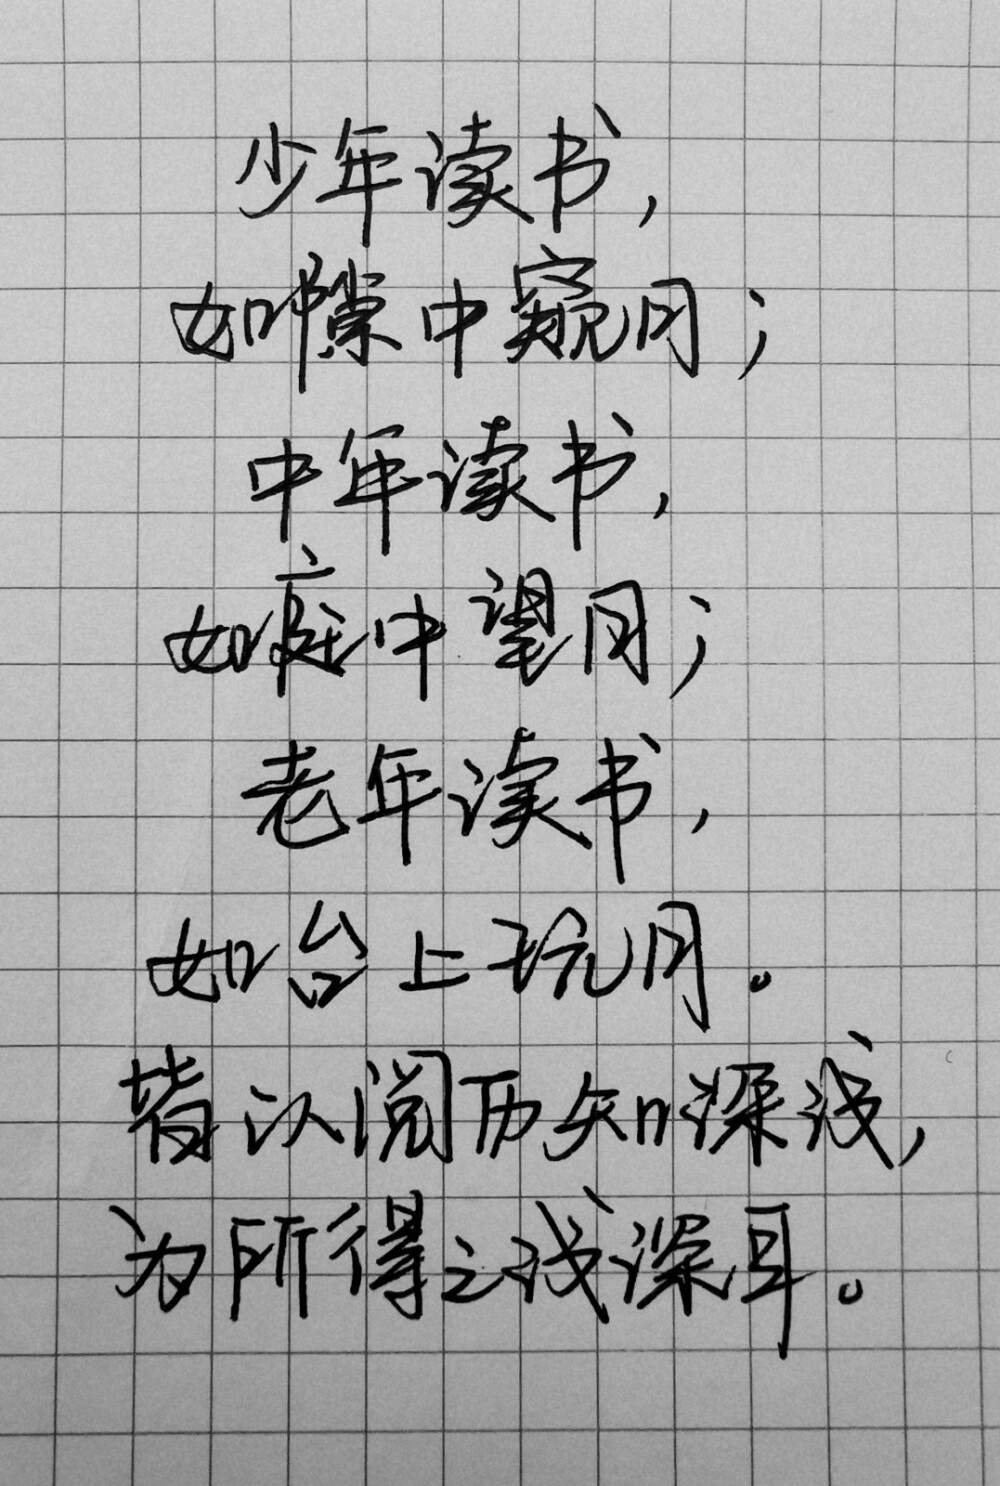 少年读书，
如隙中窥月；
中年读书，
如庭中望月；
老年读书，
如台上玩月。
皆以阅历知深浅，
为所得之浅深耳。